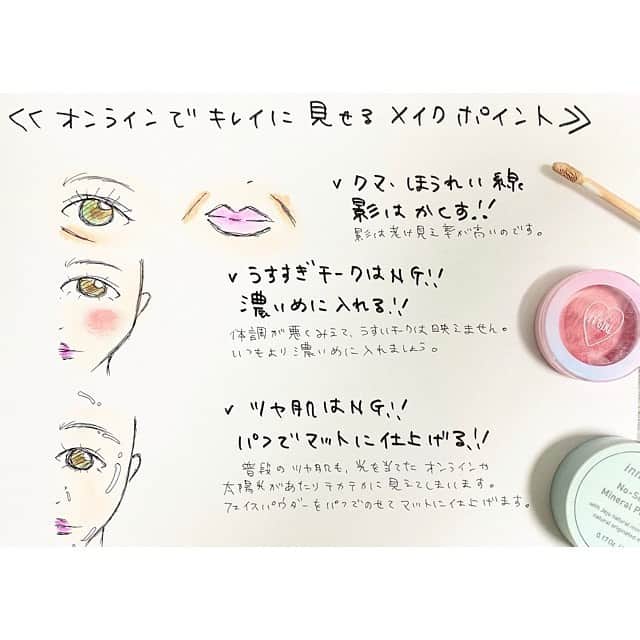 ≪ オンラインで キレイに 見せる メイク ポイント ≫
✓ クマ、ほうれい線
影は かくす!!
影は老け見え率が高いのです。
✓ うすすぎチークはNG!!
濃いめに入れる!!
体調が悪くみえて、うすいチークは映えません。
いつもより濃いめに入れましょう。
✓ ツヤ肌はNG!!
パフでマットに仕上げる!!
普段のツヤ肌も、光を当てたオンラインや
太陽光があたりテカテカに見えてしまいます。
フェイスパウダーをパフでのせてマットに仕上げます。
inni
No-S
Mineral P
with Jeju natural
natural originated
0.17Oz